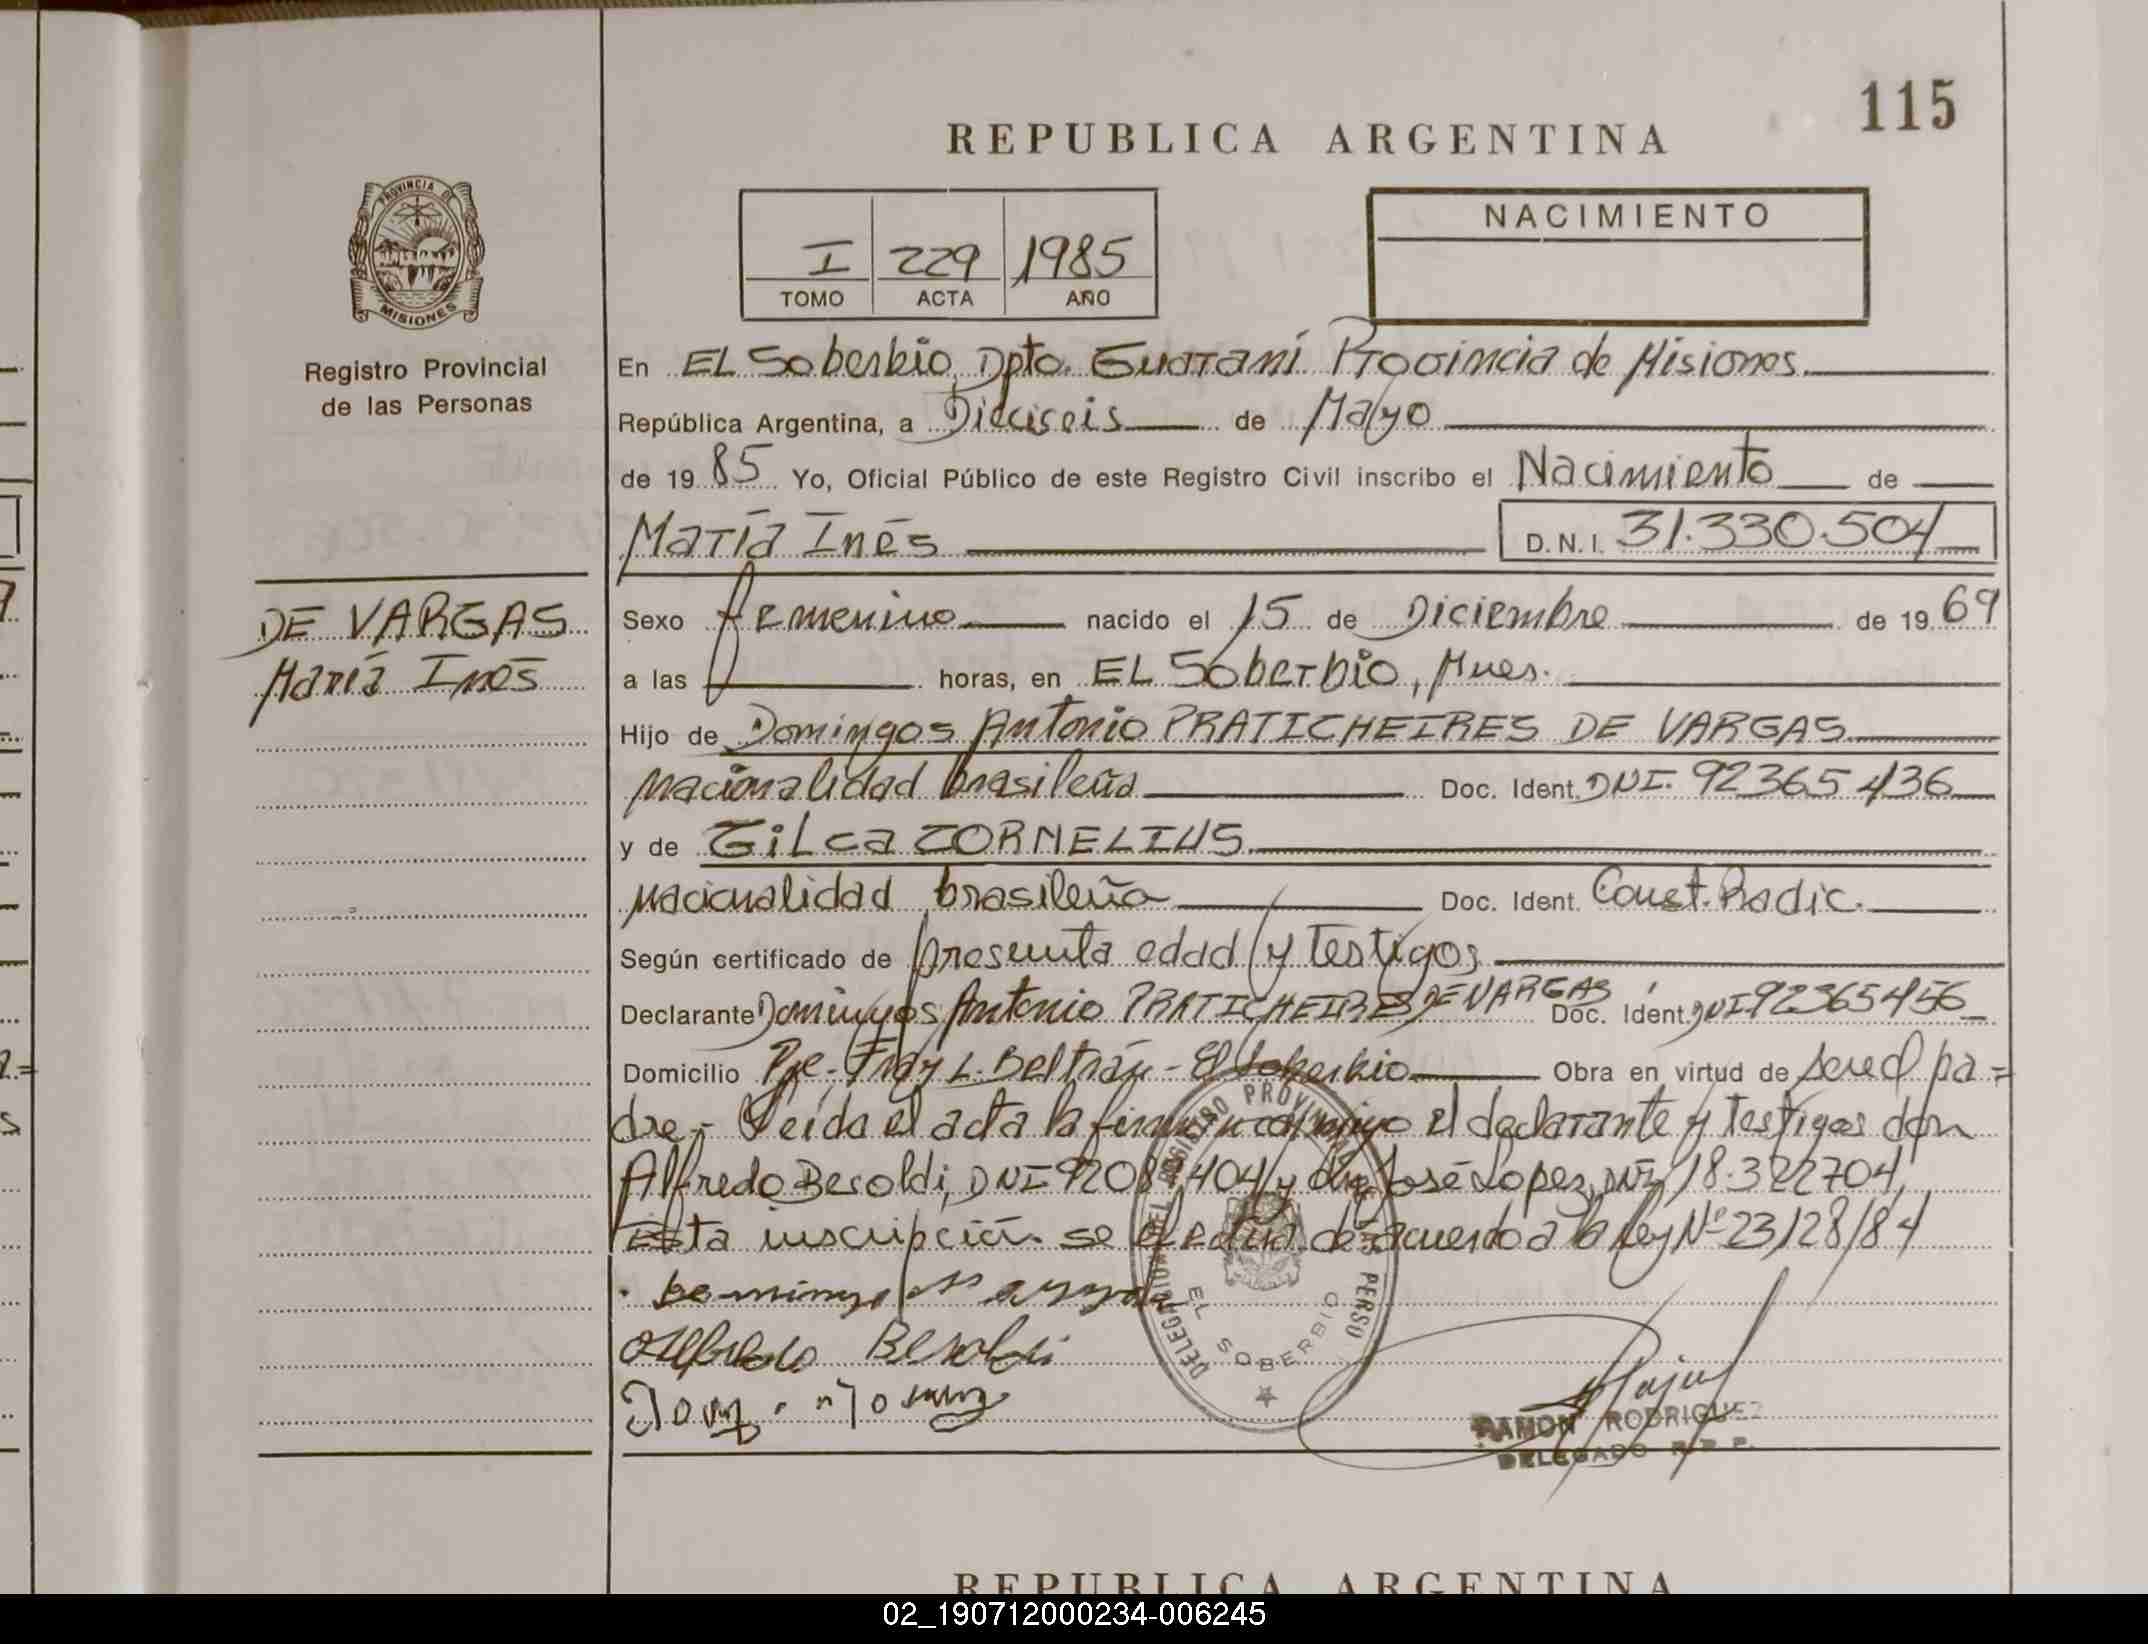 115
REPUBLICA ARGENTINA
PROVINCIA DE
MISIONES
Registro Provincial
de las Personas
I 229 1985
TOMO ACTA AÑO
NACIMIENTO
En EL Soberbio, Dpto. Guaraní Provincia de Misiones.
República Argentina, a Dieciseis de Mayo
de 1985 Yo, Oficial Público de este Registro Civil inscribo el Nacimiento de
María Inés D.N.I. 31.330.504
DE VARGAS
María Inés
Sexo femenino nacido el 15 de Diciembre de 1969
a las horas, en EL Soberbio, Mnes.
Hijo de Domingos Antonio PRATICHEIRES DE VARGAS
nacionalidad brasileña Doc. Ident. DNI. 92365436
y de Gilca CORNELIUS
nacionalidad brasileña Doc. Ident. Const. Radic.
Según certificado de presunta edad y testigos
Declarante Domingos Antonio PRATICHEIRES DE VARGAS Doc. Ident. DNI 92365456
Domicilio Pje. Fray L. Beltrán - El Soberbio Obra en virtud de ser el pa=
dre.- Leída el acta la firman conmigo el declarante y testigos don
Alfredo Besoldi, DNI 92087404 y don José Lopez, DNI 18.322704,
Esta inscripción se efectúa de acuerdo a la Ley Nº 23128/84
Alfredo Besoldi
DELEGACION DEL REGISTRO PROVINCIAL PERSO
EL SOBERBIO
RAMON RODRIGUEZ
DELEGADO R.P.P.
REPUBLICA ARGENTINA
02_190712000234-006245